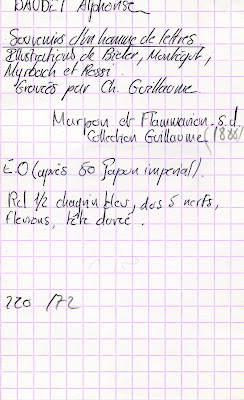 DAUDET Alphonse
Souvenirs d'un homme de lettres
Illustrations de Bieler, Montégut,
Myrbach et Rossi.
Gravées par Ch. Guillaume.
Marpon et Flammarion s.d.
Collection Guillaume (1888)
E.O (après 50 Japon imperial).
Rel 1/2 chagrin bleu, dos 5 nerfs,
fleurons, tête dorée.
220 /72